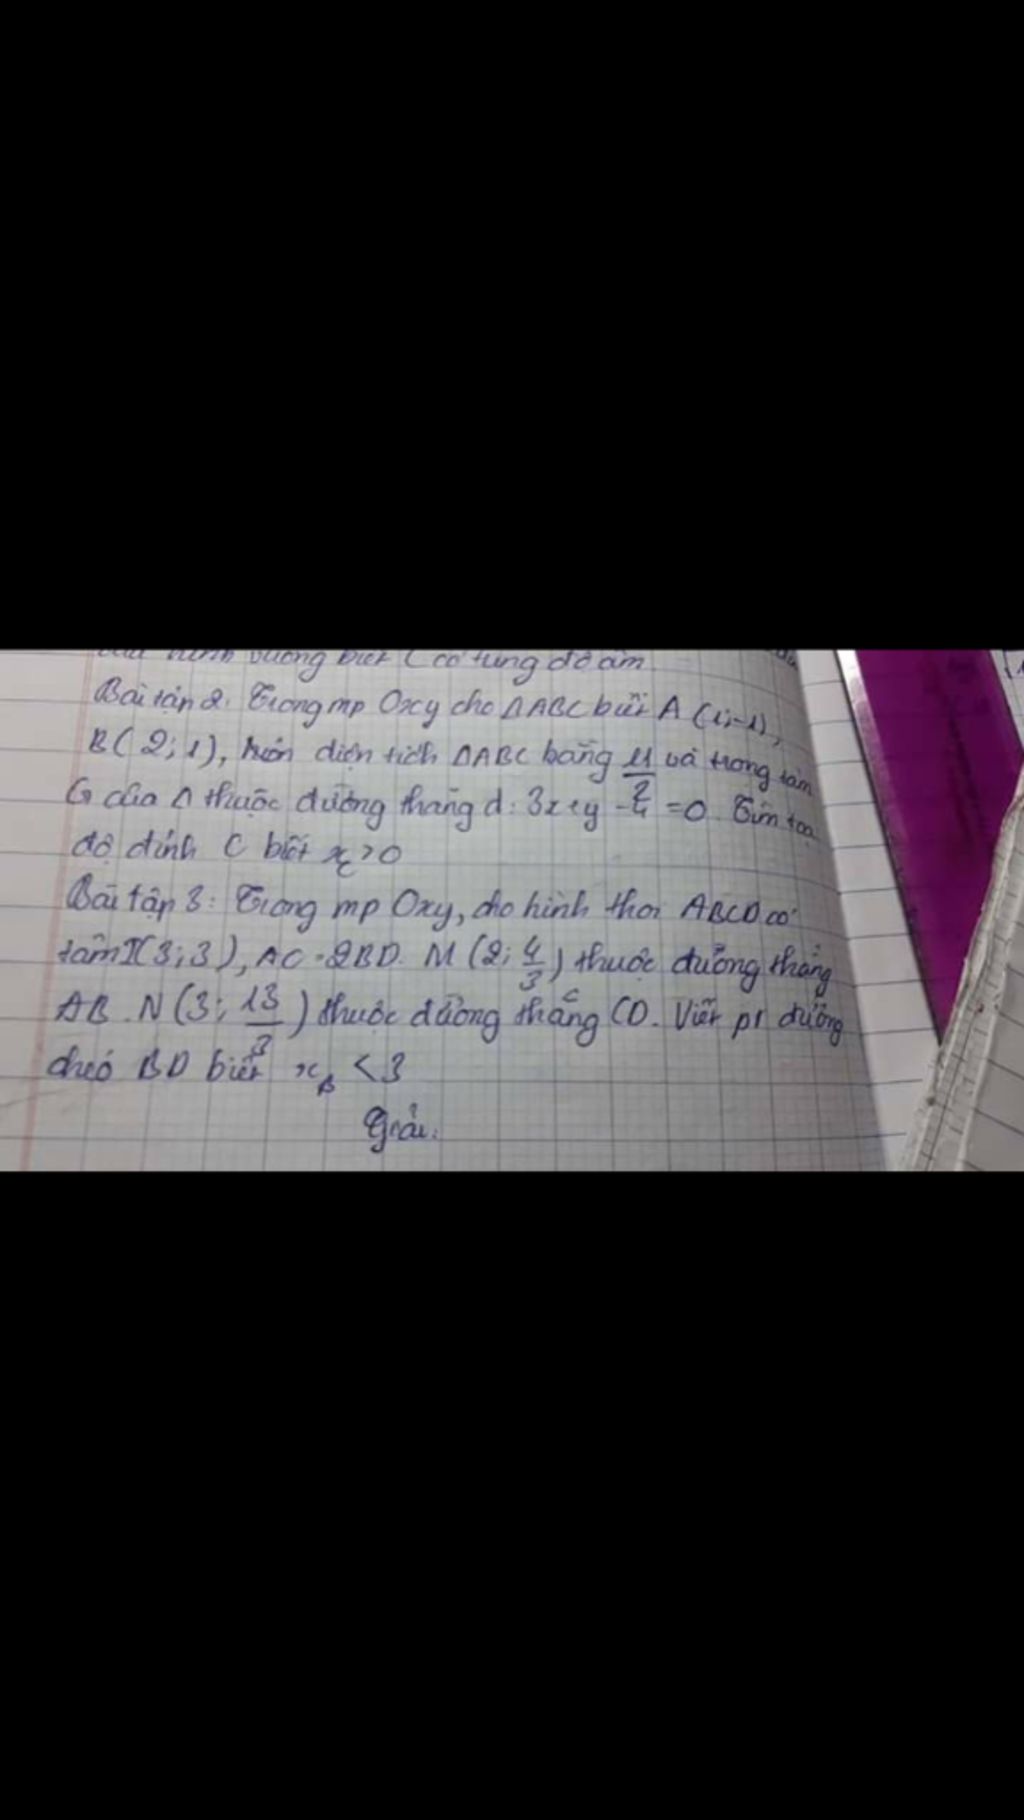 hình vuông biết C có tung độ âm
Bài tập 2. Trong mp Oxy cho ΔABC biết A (1;-1),
B(2;1), diện tích ΔABC bằng 11/2 và trọng tâm
G của Δ thuộc đường thẳng d: 3x+y - =0. Tìm toạ
độ đỉnh C biết x_C>0
Bài tập 3: Trong mp Oxy, cho hình thoi ABCD có
tâm I(3;3), AC=2BD. M (2; 4/3) thuộc đường thẳng
AB. N (3; 13/3) thuộc đường thẳng CD. Viết pt đường
chéo BD biết x_B <3
Giải: